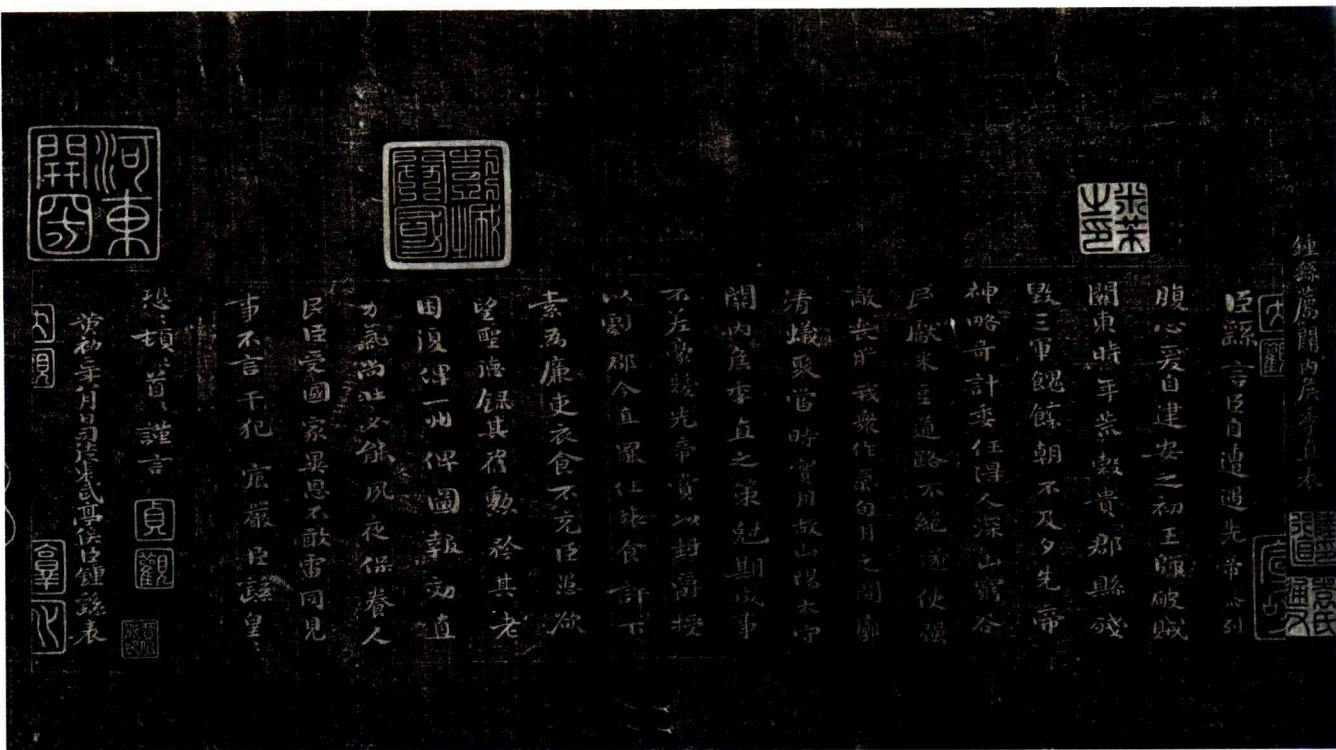 鍾繇薦關內侯季直表
臣繇言臣自遭遇先帝忝列
腹心爰自建安之初王師破賊
關東時年荒穀貴郡縣殘
毀三軍餽饟朝不及夕先帝
神略奇計委任得人深山窮谷
民獻米豆道路不絕遂使强
敵喪膽我衆作氣旬月之間廓
清蟻聚當時實用故山陽太守
關內侯季直之策剋期成事
不差豪髮先帝賞以封爵授
以劇郡今直罷任旅食許下
素為廉吏衣食不充臣愚欲
望聖德錄其舊勳矜其老
困復俾一州俾圖報効直
力氣尚壯必能夙夜保養人
民臣受國家異恩不敢雷同見
事不言干犯宸嚴臣繇皇〻
恐〻頓〻首〻謹言
黃初二年八月日司徒東武亭侯臣鍾繇表
米芾之印
河東開國
貞觀